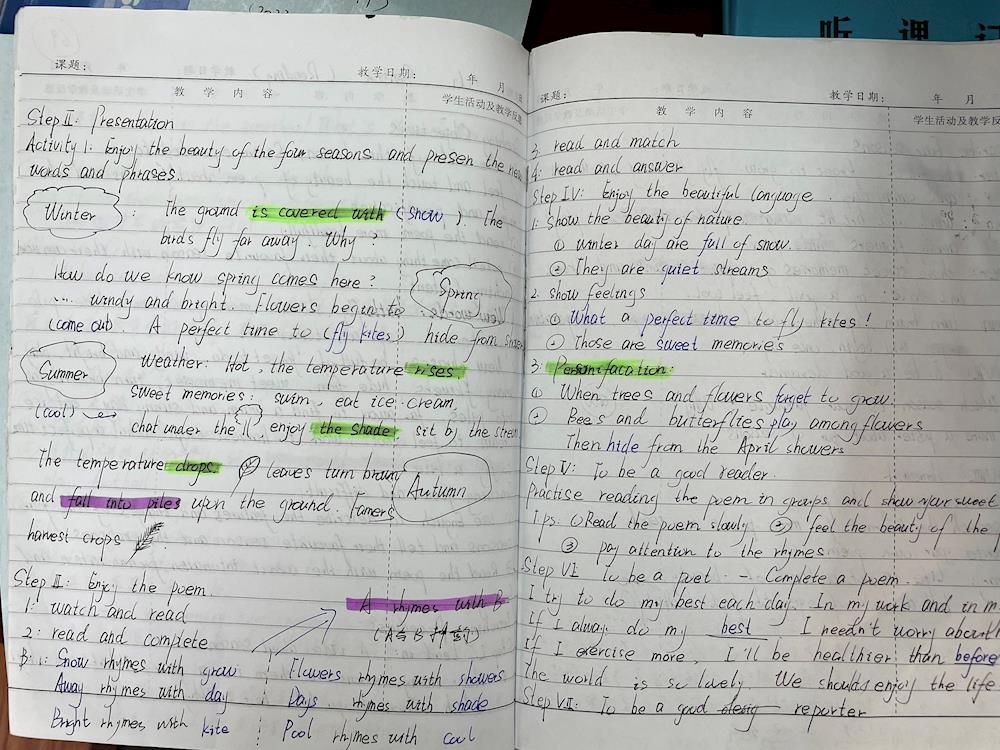 听 课 记
课题:
教学日期: 年 月
教 学 内 容
学生活动及教学反思
Step II: Presentation
Activity 1: Enjoy the beauty of the four seasons and presen the new
words and phrases.
Winter : The ground is covered with (snow). The
birds fly far away. Why?
How do we know spring comes here?
Spring
... windy and bright. Flowers begin to
(come out). A perfect time to (fly kites) hide from
Summer
Weather: Hot, the temperature rises.
sweet memories: swim, eat ice-cream,
(cool) chat under the , enjoy the shade, sit by the
The temperature drops. leaves turn
Autumn
and fall into piles upon the ground. Famers
harvest crops
Step III: Enjoy the poem.
1: watch and read
2: read and complete
A rhymes with B
(A与B押韵)
B: 1: Snow rhymes with grow
Flowers rhymes with showers
Away rhymes with day
Days rhymes with shade
Bright rhymes with kite
Pool rhymes with cool
课题:
教学日期: 年 月
教 学 内 容
学生活动及教学反
3. read and match
4: read and answer
Step IV: Enjoy the beautiful language.
1: Show the beauty of nature.
① winter day are full of snow.
② They are quiet streams
2. show feelings
① What a perfect time to fly kites!
② Those are sweet memories
3: Personifacation:
① When trees and flowers forget to grow
② Bees and butterflies play among flowers
Then hide from the April showers
Step V: To be a good reader.
Practise reading the poem in groups and show your sweet
Tps: ① Read the poem slowly ② feel the beauty of the
③ pay attention to the rhymes
Step VI To be a poet -- Complete a poem.
I try to do my best each day. In my work and in m
If I alway do my best I needn't worry about
If I exercise more, I'll be healthier than before
The world is so lovely. We should enjoy the life
Step VII: To be a good reporter